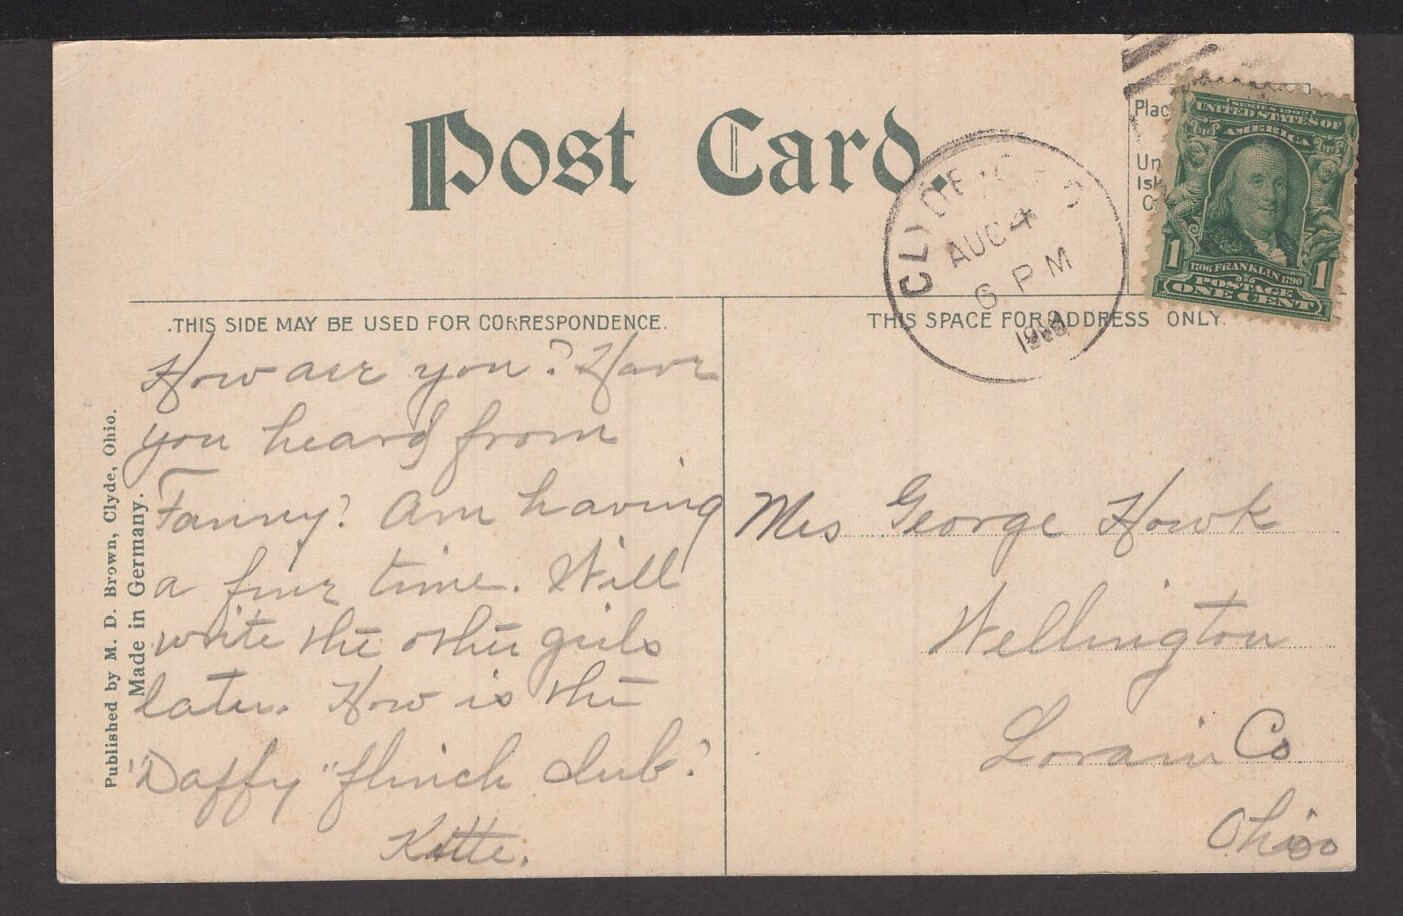 Post Card.
CLYDE, O
AUG 4
6 PM
Plac
Un
Isl
SERIES 1902
UNITED STATES OF
AMERICA
1 1
1706 FRANKLIN 1790
POSTAGE
ONE CENT
THIS SIDE MAY BE USED FOR CORRESPONDENCE.
How are you? Have
you heard from
Fanny? Am having
a fine time. Will
write the other girls
later. How is the
"Daffy" flinch club?
THIS SPACE FOR ADDRESS ONLY.
Mrs George Howk
Wellington
Lorain Co
Ohio
Published by M. D. Brown, Clyde, Ohio.
Made in Germany.